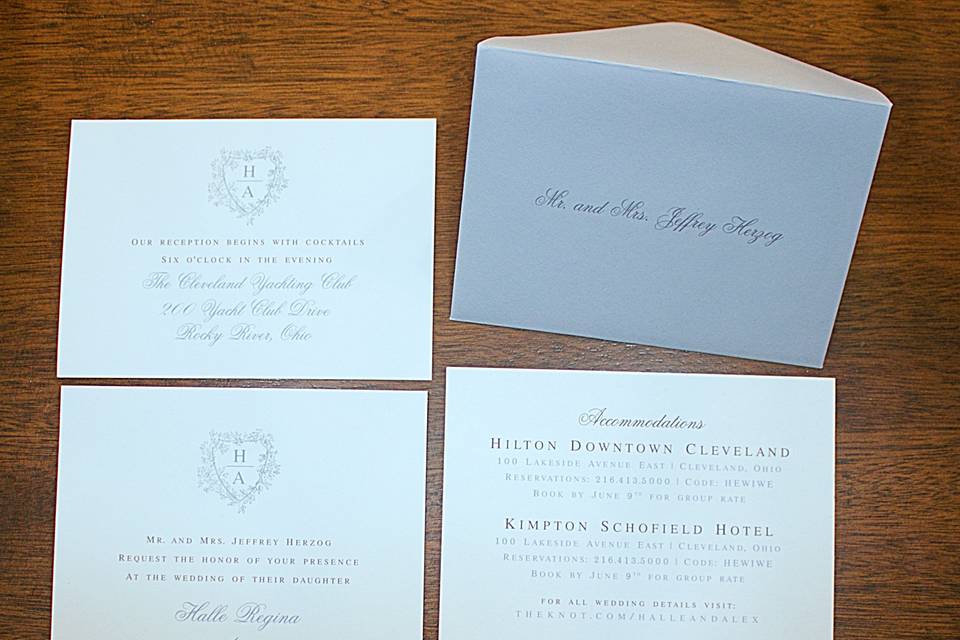 H
A
Our reception begins with cocktails
Six o'clock in the evening
The Cleveland Yachting Club
200 Yacht Club Drive
Rocky River, Ohio
Mr. and Mrs. Jeffrey Herzog
H
A
Mr. and Mrs. Jeffrey Herzog
Request the honor of your presence
At the wedding of their daughter
Halle Regina
Accommodations
Hilton Downtown Cleveland
100 Lakeside Avenue East | Cleveland, Ohio
Reservations: 216.413.5000 | Code: HEWIWE
Book by June 9th for group rate
Kimpton Schofield Hotel
100 Lakeside Avenue East | Cleveland, Ohio
Reservations: 216.413.5000 | Code: HEWIWE
Book by June 9th for group rate
for all wedding details visit:
theknot.com/halleandalex